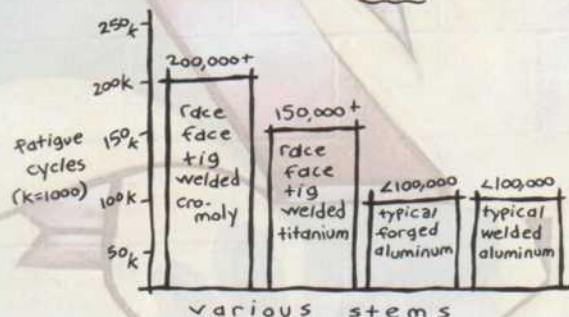 250k
200k
150k
100k
50k
fatigue
cycles
(k=1000)
200,000+
race
face
tig
welded
cro-
moly
150,000+
race
face
tig
welded
titanium
<100,000
typical
forged
aluminum
<100,000
typical
welded
aluminum
various stems